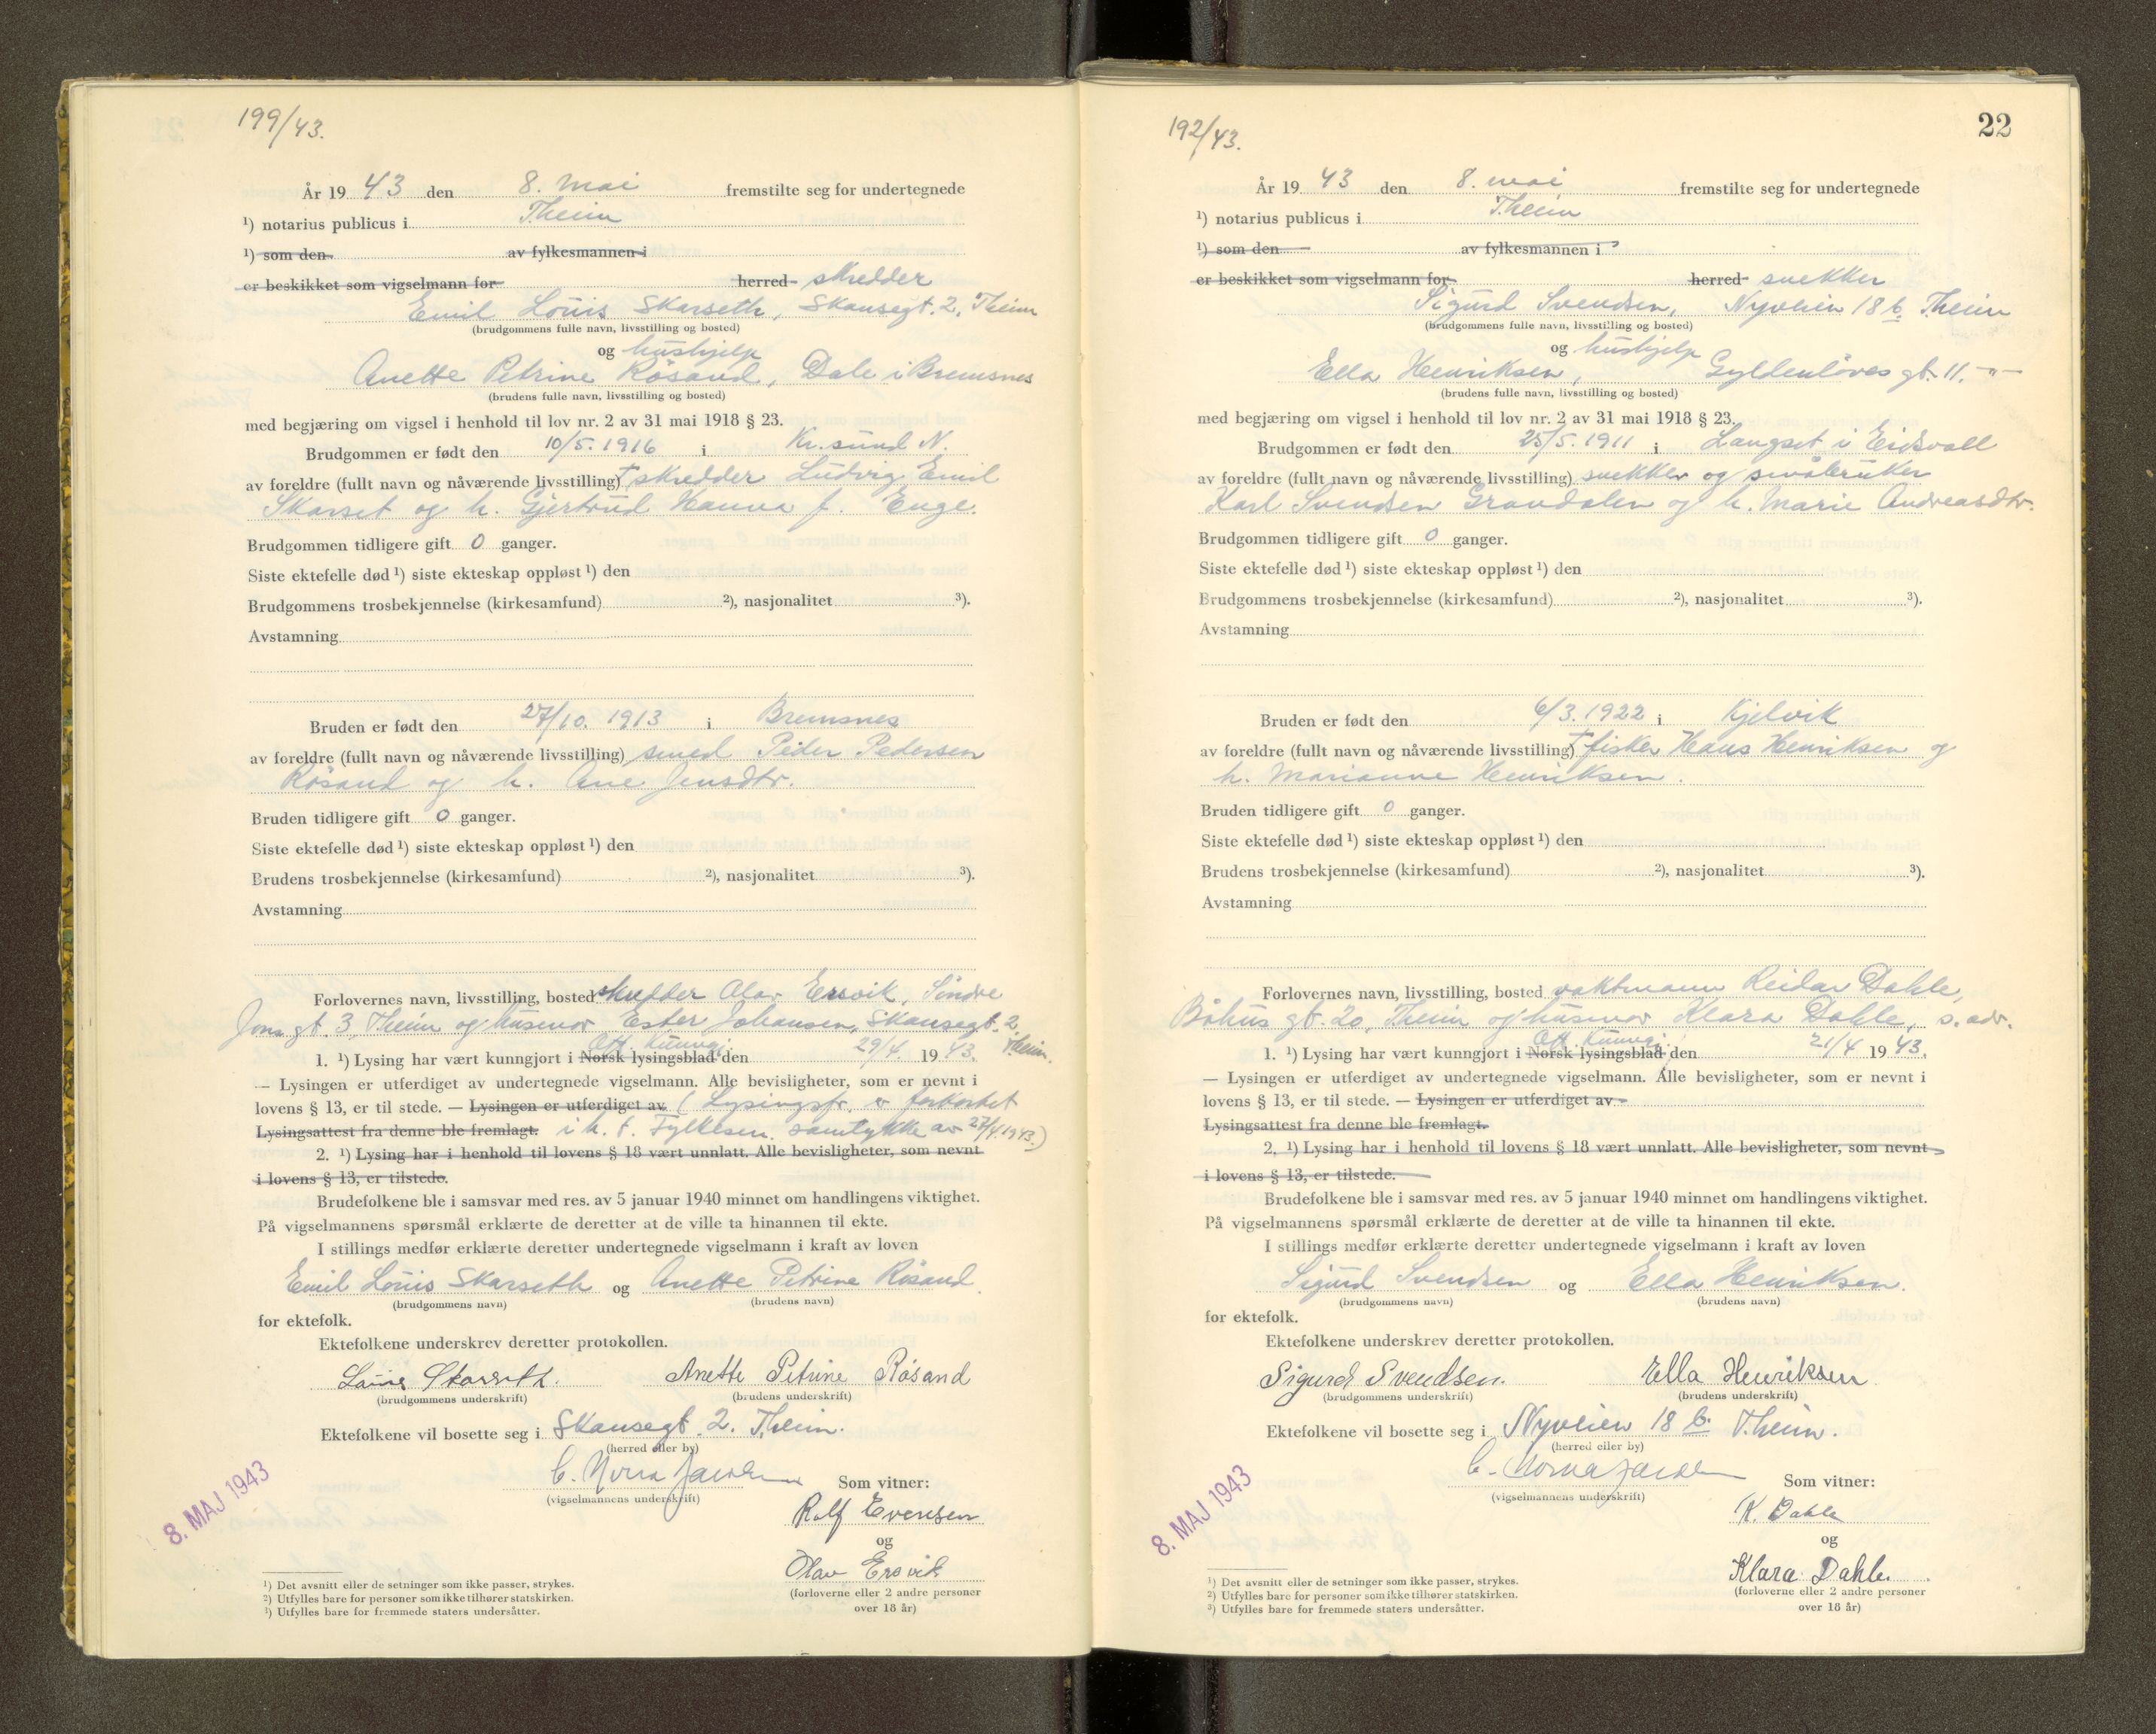 199/43.
År 19 43 den 8. Mai fremstilte seg for undertegnede
¹) notarius publicus i T.heim
¹) som den av fylkesmannen i
er beskikket som vigselmann for herred skredder
Emil Louis Skarseth, Skansegt. 2, T.heim
(brudgommens fulle navn, livsstilling og bosted)
og hushjelp
Anette Petrine Røsand, Dale i Bremsnes
(brudens fulle navn, livsstilling og bosted)
med begjæring om vigsel i henhold til lov nr. 2 av 31 mai 1918 § 23.
Brudgommen er født den 10/5. 1916 i Kr.sund N.
av foreldre (fullt navn og nåværende livsstilling) † skredder Ludvig Emil
Skarset og h. Gjertrud Hanna f. Enge.
Brudgommen tidligere gift 0 ganger.
Siste ektefelle død ¹) siste ekteskap oppløst ¹) den
Brudgommens trosbekjennelse (kirkesamfund) ²), nasjonalitet ³).
Avstamning
Bruden er født den 27/10. 1913 i Bremsnes
av foreldre (fullt navn og nåværende livsstilling) smed Peder Pedersen
Røsand og h. Ane Jensdtr.
Bruden tidligere gift 0 ganger.
Siste ektefelle død ¹) siste ekteskap oppløst ¹) den
Brudens trosbekjennelse (kirkesamfund) ²), nasjonalitet ³).
Avstamning
Forlovernes navn, livsstilling, bosted skredder Olav Ersvik, Sindre
Jons gt. 3, T.heim og husmor Ester Johansen, Skansegt. 2,
T.heim.
Off. Kunngj.
1. ¹) Lysing har vært kunngjort i Norsk lysingsblad den 29/4. 19 43.
— Lysingen er utferdiget av undertegnede vigselmann. Alle bevisligheter, som er nevnt i
lovens § 13, er til stede. — Lysingen er utferdiget av (Lysingsfr. er forkortet
Lysingsattest fra denne ble fremlagt. i h. t. Fylkesm. samtykke av 27/4. 1943.)
2. ¹) Lysing har i henhold til lovens § 18 vært unnlatt. Alle bevisligheter, som nevnt
i lovens § 13, er tilstede.
Brudefolkene ble i samsvar med res. av 5 januar 1940 minnet om handlingens viktighet.
På vigselmannens spørsmål erklærte de deretter at de ville ta hinannen til ekte.
I stillings medfør erklærte deretter undertegnede vigselmann i kraft av loven
Emil Louis Skarseth og Anette Petrine Røsand
(brudgommens navn) (brudens navn)
for ektefolk.
Ektefolkene underskrev deretter protokollen.
Louis Skarseth. Anette Petrine Røsand
(brudgommens underskrift) (brudens underskrift)
Ektefolkene vil bosette seg i Skansegt. 2. T.heim.
(herred eller by)
C. Mona Som vitner:
(vigselmannens underskrift)
Rolf Evensen
og
Olav Ersvik
(forloverne eller 2 andre personer
over 18 år)
8. MAJ 1943
¹) Det avsnitt eller de setninger som ikke passer, strykes.
²) Utfylles bare for personer som ikke tilhører statskirken.
³) Utfylles bare for fremmede staters undersåtter.
192/43.
22
År 19 43 den 8. mai fremstilte seg for undertegnede
¹) notarius publicus i T.heim
¹) som den av fylkesmannen i
er beskikket som vigselmann for herred snekker
Sigurd Svendsen, Nyveien 18 b. T.heim
(brudgommens fulle navn, livsstilling og bosted)
og hushjelp
Ella Henriksen, Gyldenløves gt. 11. –"–
(brudens fulle navn, livsstilling og bosted)
med begjæring om vigsel i henhold til lov nr. 2 av 31 mai 1918 § 23.
Brudgommen er født den 25/5. 1911 i Langset i Eidsvoll
av foreldre (fullt navn og nåværende livsstilling) snekker og småbruker
Karl Svendsen Grandalen og h. Marie Andreasdtr.
Brudgommen tidligere gift 0 ganger.
Siste ektefelle død ¹) siste ekteskap oppløst ¹) den
Brudgommens trosbekjennelse (kirkesamfund) ²), nasjonalitet ³).
Avstamning
Bruden er født den 6/3. 1922 i Kjelvik
av foreldre (fullt navn og nåværende livsstilling) † fisker Hans Henriksen og
h. Marianne Henriksen.
Bruden tidligere gift 0 ganger.
Siste ektefelle død ¹) siste ekteskap oppløst ¹) den
Brudens trosbekjennelse (kirkesamfund) ²), nasjonalitet ³).
Avstamning
Forlovernes navn, livsstilling, bosted vaktmann Reidar Dahle,
Båhus gt. 20, T.heim og husmor Klara Dahle, s. adr.
Off. Kunngj.
1. ¹) Lysing har vært kunngjort i Norsk lysingsblad den 21/4 19 43.
— Lysingen er utferdiget av undertegnede vigselmann. Alle bevisligheter, som er nevnt i
lovens § 13, er til stede. — Lysingen er utferdiget av
Lysingsattest fra denne ble fremlagt.
2. ¹) Lysing har i henhold til lovens § 18 vært unnlatt. Alle bevisligheter, som nevnt
i lovens § 13, er tilstede.
Brudefolkene ble i samsvar med res. av 5 januar 1940 minnet om handlingens viktighet.
På vigselmannens spørsmål erklærte de deretter at de ville ta hinannen til ekte.
I stillings medfør erklærte deretter undertegnede vigselmann i kraft av loven
Sigurd Svendsen og Ella Henriksen.
(brudgommens navn) (brudens navn)
for ektefolk.
Ektefolkene underskrev deretter protokollen.
Sigurd Svendsen. Ella Henriksen
(brudgommens underskrift) (brudens underskrift)
Ektefolkene vil bosette seg i Nyveien 18 b. T.heim.
(herred eller by)
C. Mona Som vitner:
(vigselmannens underskrift)
R. Dahle
og
Klara Dahle.
(forloverne eller 2 andre personer
over 18 år)
8. MAJ 1943
¹) Det avsnitt eller de setninger som ikke passer, strykes.
²) Utfylles bare for personer som ikke tilhører statskirken.
³) Utfylles bare for fremmede staters undersåtter.